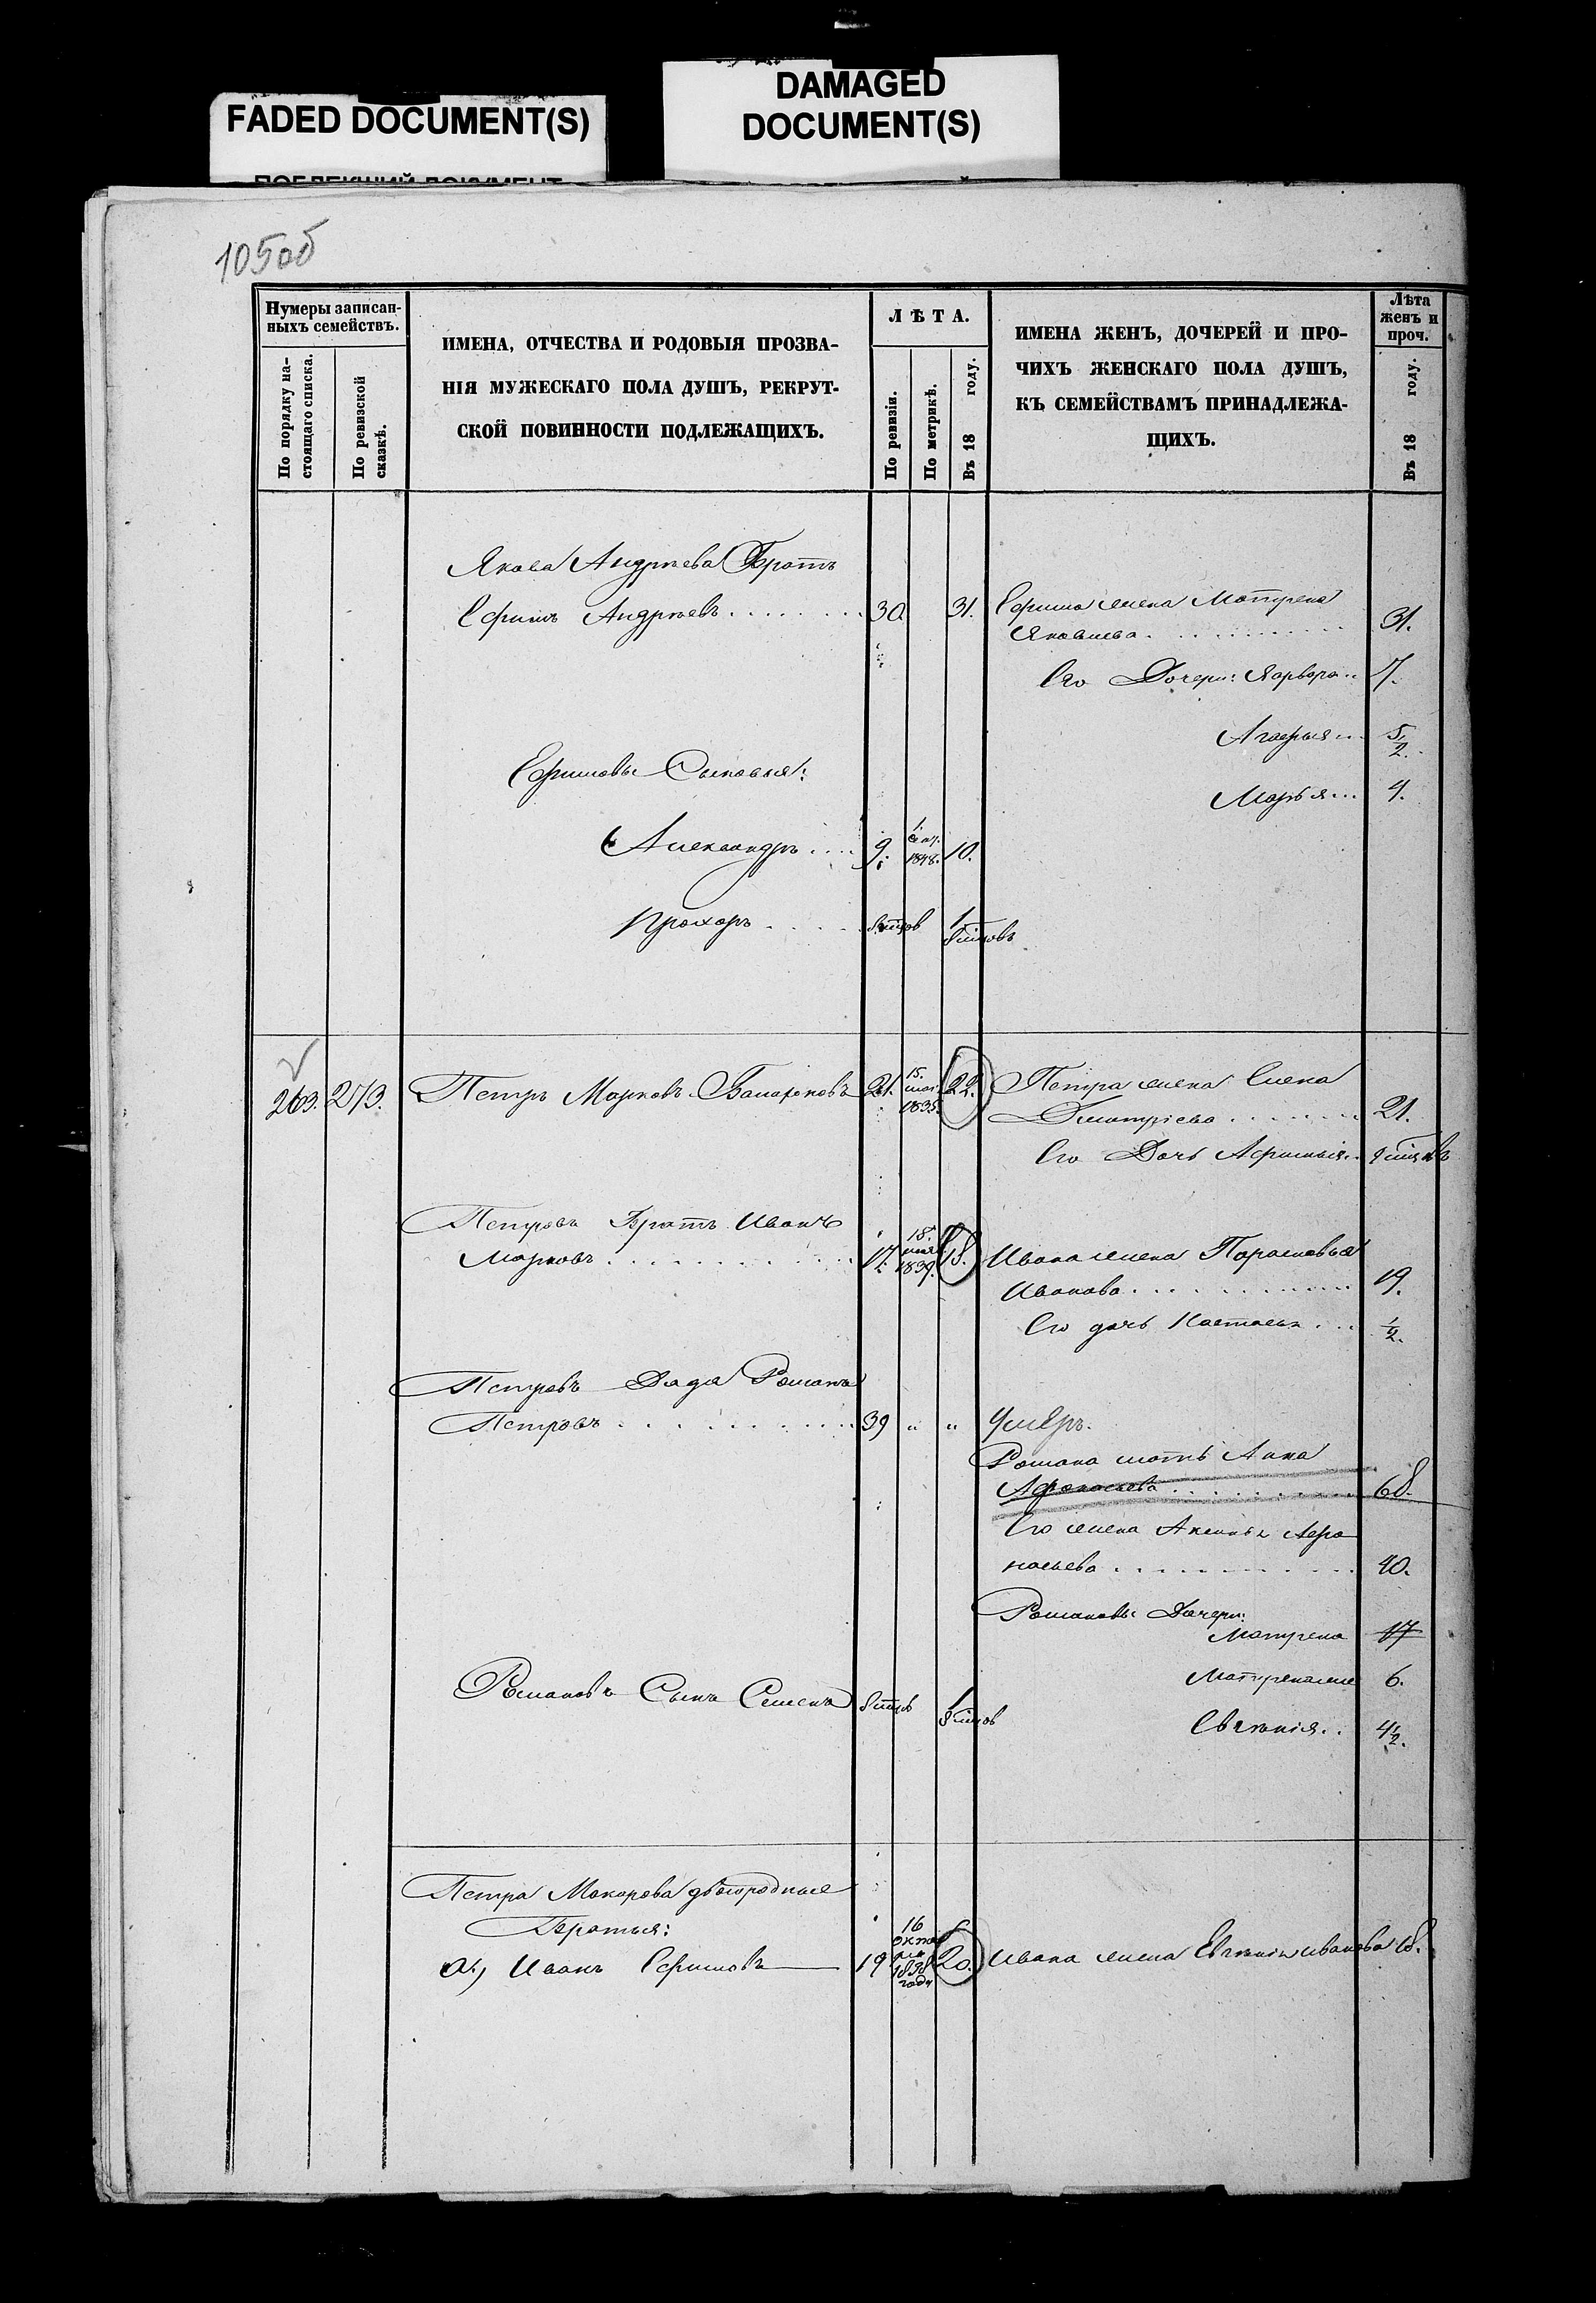 FADED DOCUMENT(S)
DAMAGED
DOCUMENT(S)
105об
Нумеры записан-
ныхъ семействъ.
По порядку на-
стоящаго списка.
По ревизской
сказкѣ.
ИМЕНА, ОТЧЕСТВА И РОДОВЫЯ ПРОЗВА-
НІЯ МУЖЕСКАГО ПОЛА ДУШЪ, РЕКРУТ-
СКОЙ ПОВИННОСТИ ПОДЛЕЖАЩИХЪ.
ЛѢТА.
По ревизіи.
По метрикѣ.
Въ 18 году.
ИМЕНА ЖЕНЪ, ДОЧЕРЕЙ И ПРО-
ЧИХЪ ЖЕНСКАГО ПОЛА ДУШЪ,
КЪ СЕМЕЙСТВАМЪ ПРИНАДЛЕЖА-
ЩИХЪ.
Лѣта
женъ и
проч.
Въ 18 году.
Якова Андреева Братъ
Ефимъ Андреевъ 30. 31.
Ефима жена Матрена
Яковлева 31.
Его Дочери: Варвара 7.
Агафья 5/2.
Марья 4.
Ефимовы Сыновья:
Александръ 9. 1. 1848. 10.
Прохоръ 8 мцов 1 8 мцовъ
263. 273. Петръ Марковъ 21. 15. 1835. 22.
Петра жена Елена
Дмитріева 21.
Его Дочь Афимья
Петровъ Братъ Иванъ
Марковъ 17. 18. 1839. 18.
Ивана жена Парасковья
Иванова 19.
Его дочь Настасья 1/2.
Петровъ Дядя Романъ
Петровъ 39 " "
Умеръ.
Романа мать Анна
Афанасьева 68.
Его жена Аксинья Афа
насьева 40.
Романовы Дочери:
Матрена 17
6.
Евгенія 4 1/2.
Романовъ Сынъ Семенъ 8 мцов 1 8 мцов
Петра Макарова двоюродные
Братья:
а.) Иванъ Ефимовъ 19 16 октяб
ря
1838
года 20.
Ивана жена Евгенія Иванова 18.